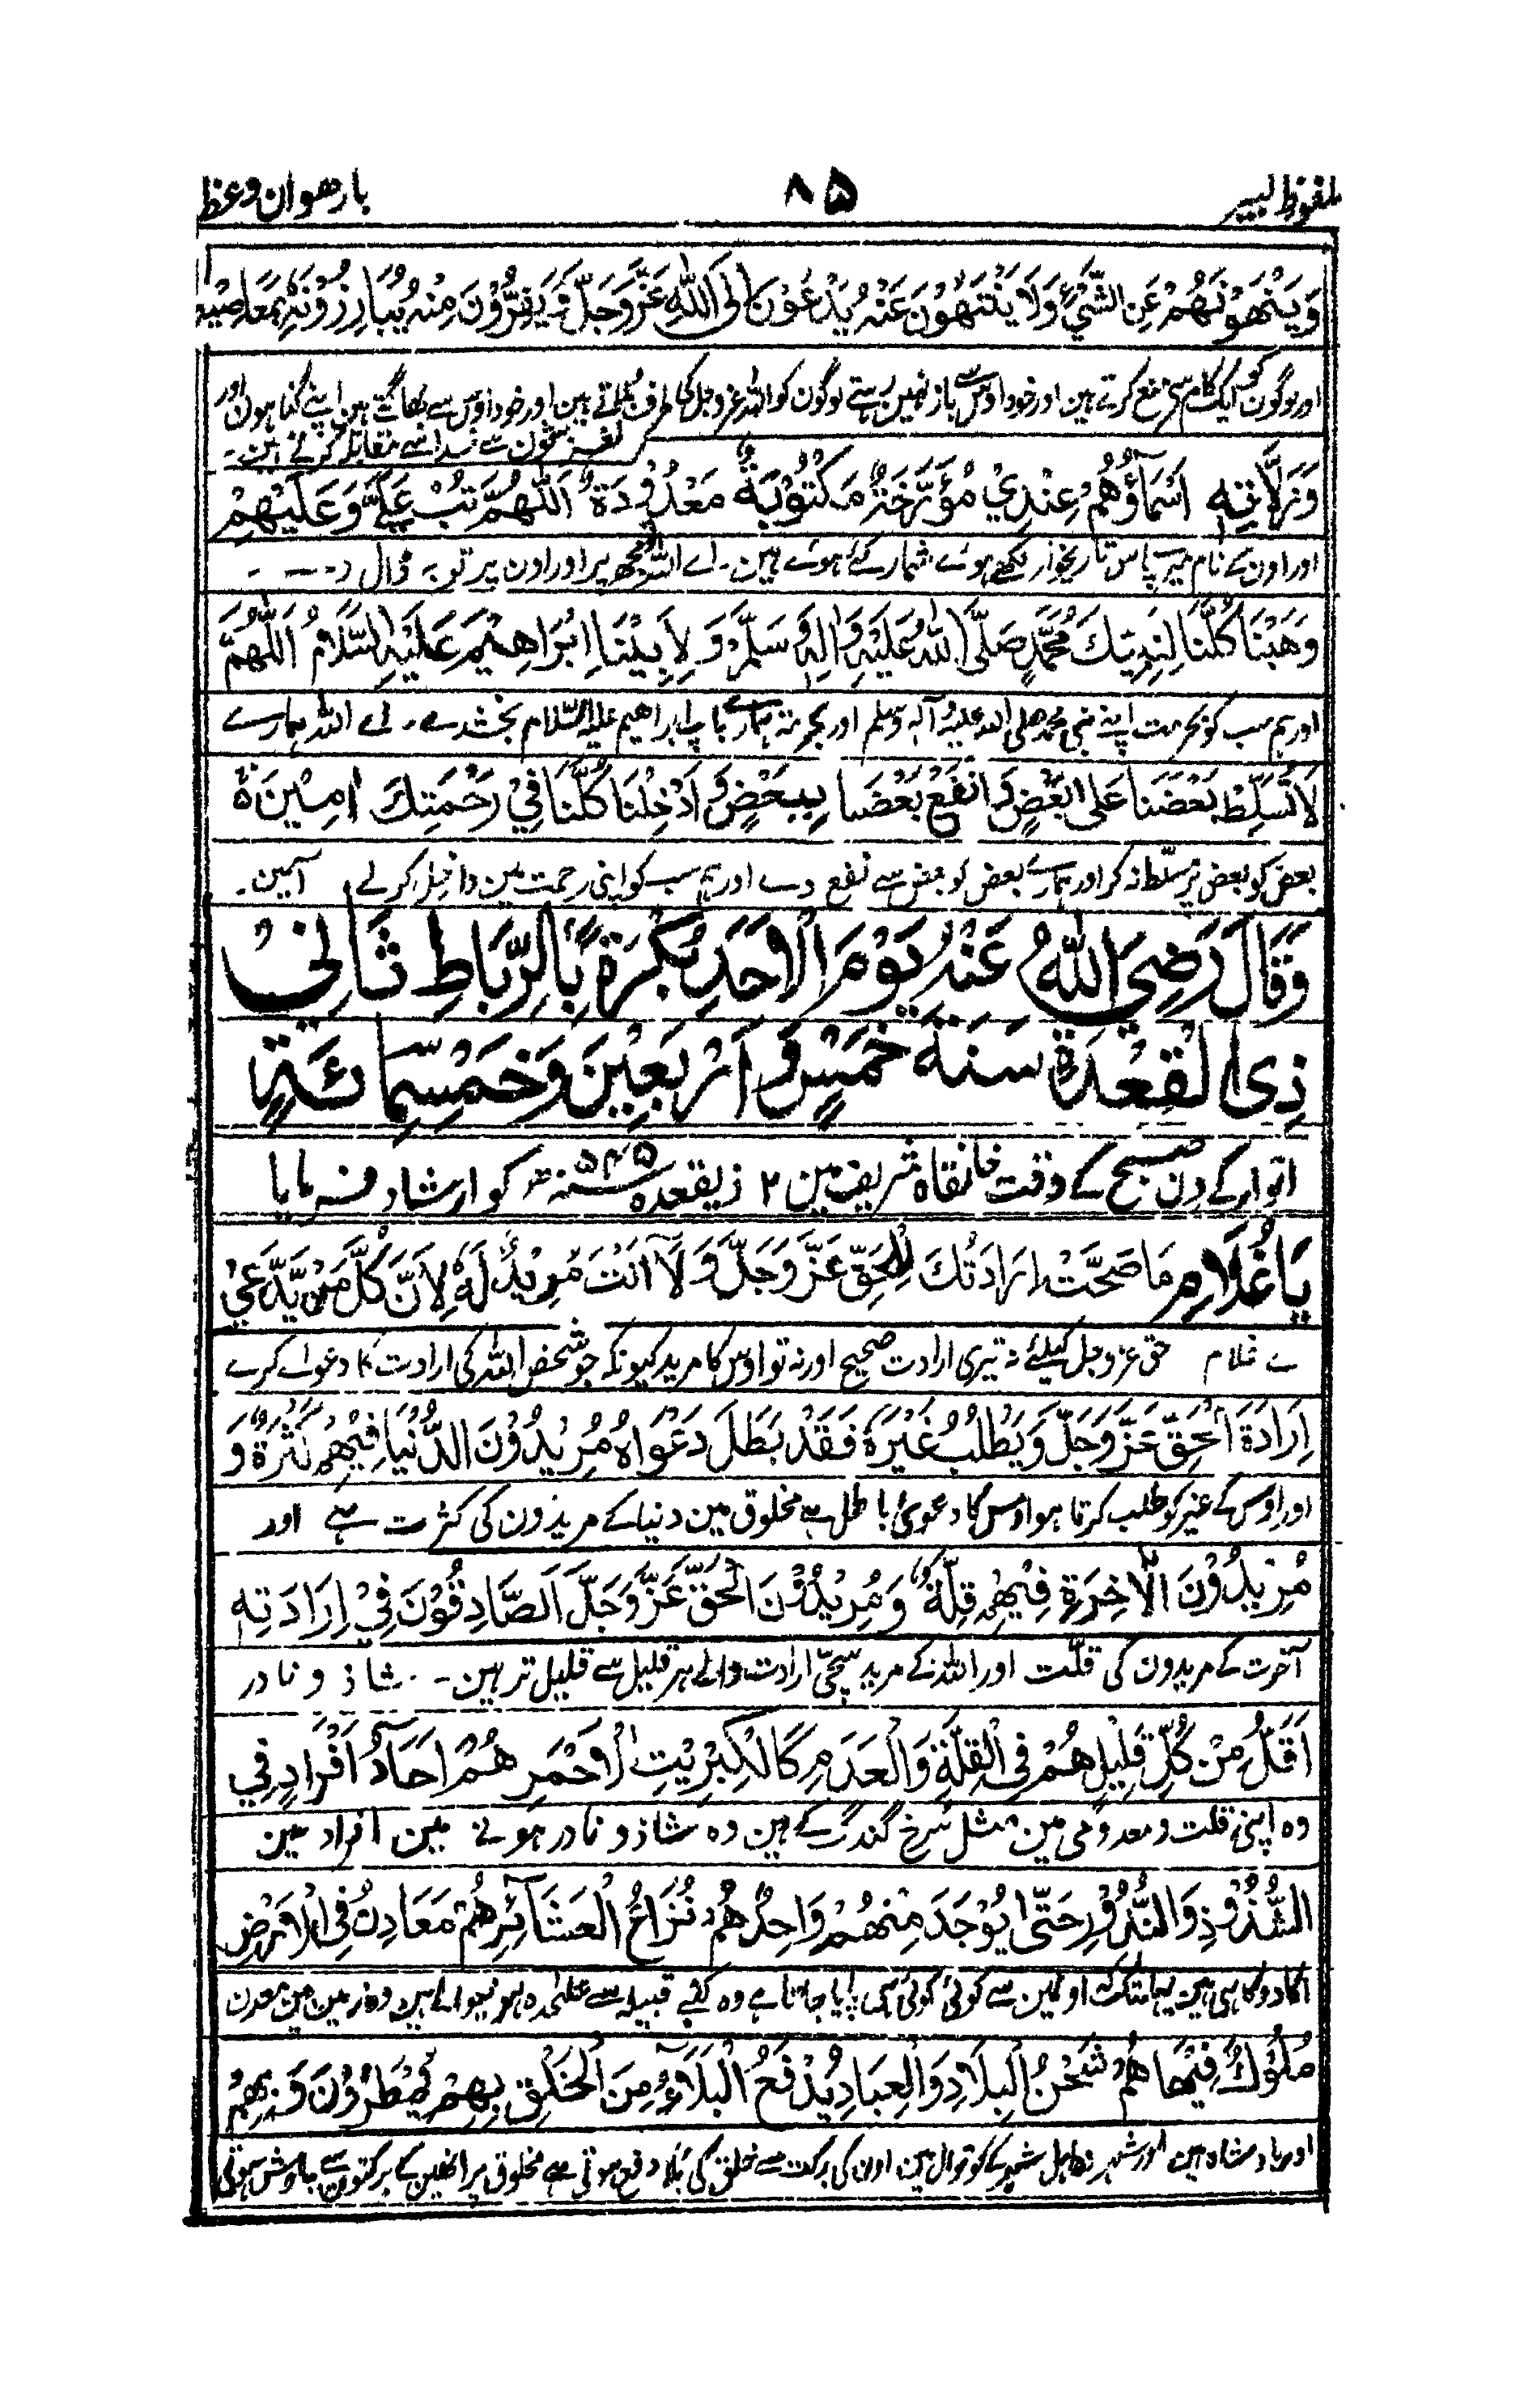 ملفوظ کبیر ۸۵ بارھوان وعظ
وَيَنْهَوْنَهُمْ عَنِ الشَّيْءِ وَلَا يَنْتَهُوْنَ عَنْهُ يَدْعُوْنَ اِلَى اللّٰهِ عَزَّوَجَلَّ وَ يَفِرُّوْنَ مِنْهُ يُبَارِزُوْنَهٗ بِمَعَاصِيْهِ
اور لوگون کو ایک کام سے منع کرتے ہین اور خود اوس سے باز نہین رہتے لوگون کو اللہ عزوجل کی طرف بلاتے ہین اور خود اوس سے بھاگتے ہین اپنے گناہون اور
لغزشون سے خدا سے مقابلہ کرتے ہین۔
وَزَلَّاتِهٖ اَسْمَآؤُهُمْ عِنْدِيْ مُؤَرَّخَةٌ مَكْتُوْبَةٌ مَعْدُوْدَةٌ اَللّٰهُمَّ تُبْ عَلَيَّ وَعَلَيْهِمْ
اور اون کے نام میرے پاس تاریخوار لکھے ہوئے شمار کئے ہوئے ہین۔ اے اللہ مجھ پر اور اون پر توبہ ڈال دے
وَهَبْنَا كُلَّنَا لِنَبِيِّكَ مُحَمَّدٍ صَلَّى اللّٰهُ عَلَيْهِ وَاٰلِهٖ وَسَلَّمَ وَ لِاَبِيْنَا اِبْرَاهِيْمَ عَلَيْهِ السَّلَامُ اَللّٰهُمَّ
اور ہم سب کو بحرمت اپنے نبی محمد صلی اللہ علیہ وآلہ وسلم اور بحرمت ہمارے باپ ابراھیم علیہ السلام بخشدے۔ اے اللہ ہمارے
لَا تُسَلِّطْ بَعْضَنَا عَلٰى بَعْضٍ وَ انْفَعْ بَعْضَنَا بِبَعْضٍ وَ اَدْخِلْنَا كُلَّنَا فِيْ رَحْمَتِكَ اٰمِيْنَ ۃ
بعض کو بعض پر مسلط نہ کر اور ہمارے بعض کو بعض سے نفع دے اور ہم سب کو اپنی رحمت مین داخل کر لے آمین۔
وَقَالَ رَضِيَ اللّٰهُ عَنْهُ يَوْمَ الْاَحَدِ بُكْرَةً بِالرِّبَاطِ ثَانِيْ
ذِي الْقَعْدَةِ سَنَةَ خَمْسٍ وَ اَرْبَعِيْنَ وَخَمْسِمِائَةٍ
اتوار کے دن صبح کے وقت خانقاہ شریف مین ۲ ذیقعدہ ۵۴۵ سنہ ھ کو ارشاد فرمایا
يَا غُلَامِ مَا صَحَّتْ اِرَادَتُكَ لِلْحَقِّ عَزَّوَجَلَّ وَ لَا اَنْتَ مُرِيْدٌ لَهٗ لِاَنَّ كُلَّ مَنْ يَّدَّعِيْ
ے غلام حق عزوجل کیلئے نہ تیری ارادت صحیح اور نہ تو اوس کا مرید کیونکہ جو شخص اللہ کی ارادت کا دعوے کرے
اِرَادَةَ الْحَقِّ عَزَّوَجَلَّ وَ يَطْلُبُ غَيْرَهٗ فَقَدْ بَطَلَ دَعْوَاهُ مُرِيْدُوْنَ الدُّنْيَا فِيْهِمْ كَثْرَةٌ وَ
اور اوس کے غیر کو طلب کرتا ہو اوس کا دعوی باطل ہے مخلوق مین دنیا کے مریدون کی کثرت ہے اور
مُرِيْدُوْنَ الْاٰخِرَةِ فِيْهِمْ قِلَّةٌ وَ مُرِيْدُوْنَ الْحَقِّ عَزَّوَجَلَّ اَلصَّادِقُوْنَ فِيْ اِرَادَتِهٖ
آخرت کے مریدون کی قلّت اور اللہ کے مرید سچی ارادت والے ہر قلیل سے قلیل تر ہین۔ شاذ و نادر
اَقَلُّ مِنْ كُلِّ قَلِيْلٍ هُمْ فِي الْقِلَّةِ وَالْعَدَمِ كَالْكِبْرِيْتِ الْاَحْمَرِ هُمْ اٰحَادٌ اَفْرَادٌ فِي
وہ اپنی قلت و معدومی مین مثل سُرخ گندک کے ہین وہ شاذ و نادر ہونے مین افراد مین
الشُّذُوْذِ وَالنُّدُوْرِ حَتّٰى يُوْجَدَ مِنْهُمْ وَاحِدٌ هُمْ نُزَّاعُ الْعَشَآئِرِ هُمْ مَعَادِنُ فِي الْاَرْضِ
اکا دوکا ہی ہین یہانتک کہ اونمین سے کوئی کوئی ہی پایا جاتا ہے وہ کنبے قبیلہ سے علٰحدہ ہونیوالے ہین وہ زمین مین معدن
مُلُوْكٌ فِيْهَا هُمْ شُحَنُ الْبِلَادِ وَالْعِبَادِ يُدْفَعُ الْبَلَآءُ مِنَ الْخَلْقِ بِهِمْ يُمْطَرُوْنَ وَ بِهِمْ
اور بادشاہ ہین اور شہر و اہل شہر کے کوتوال ہین اون کی برکت سے خلق کی بلا دفع ہوتی ہے مخلوق پر انھین کے برکتون سے بارش ہوتی